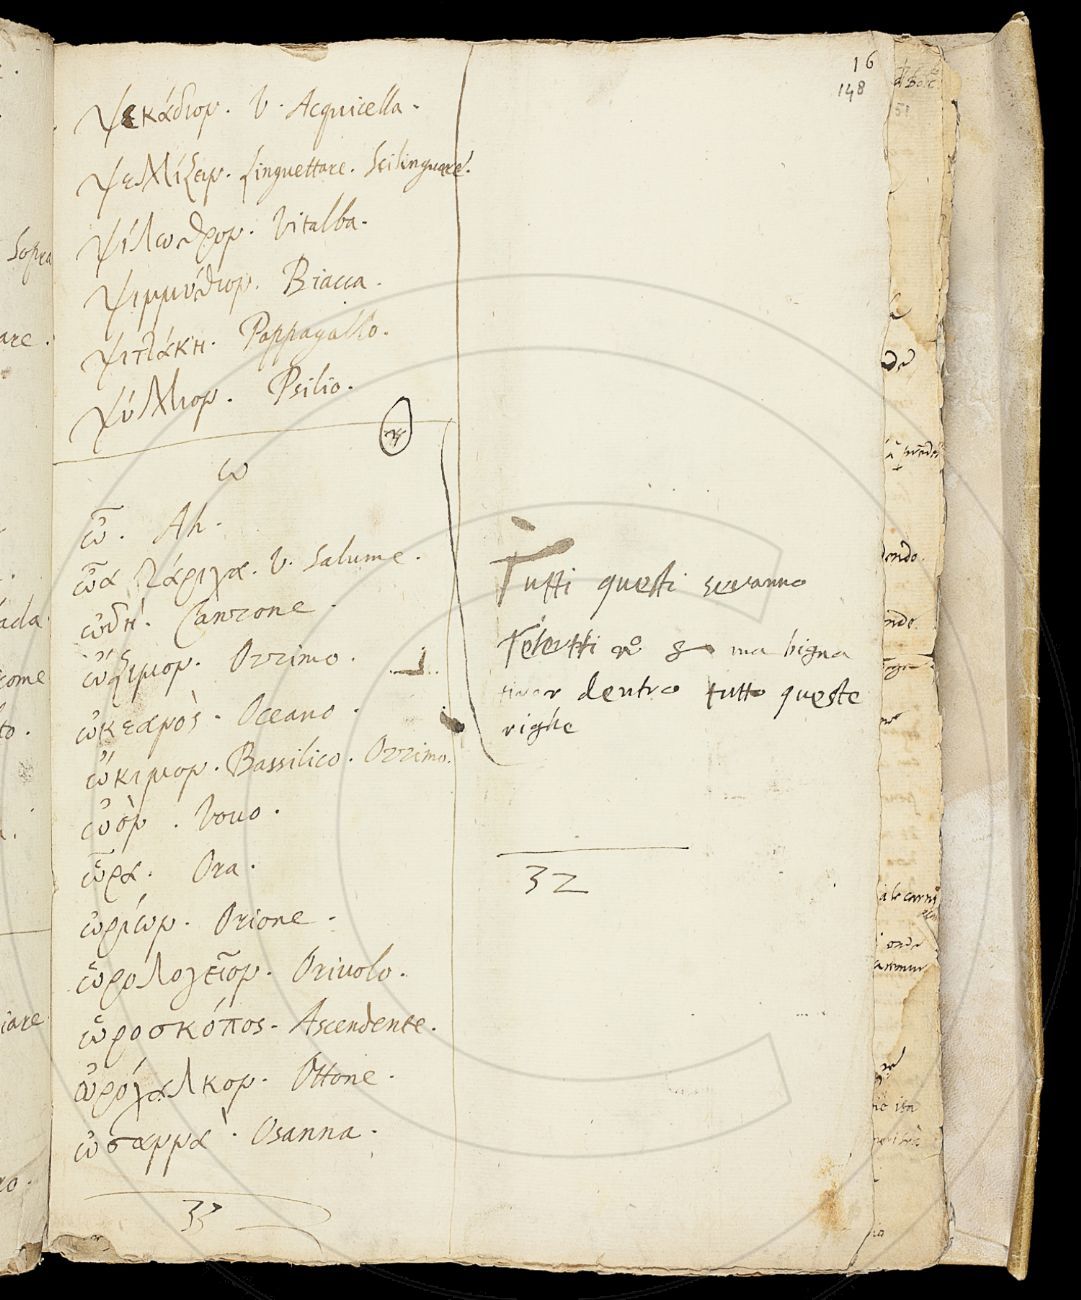 16
148
ψεκάδιον. V. Acquicella.
ψελλίζειν. Linguettare. Scilinguare.
ψίλωθρον. Vitalba.
ψιμμύθιον. Biacca.
ψιττάκη. Pappagallo.
ψύλλιον. Psilio.
ω
ὦ. Ah.
ὦα τάριχα. V. Salume.
ὠδή. Canzone.
ὤζιμον. Ozzimo.
ὠκεανὸς. Oceano.
ὤκιμον. Bassilico. Ozzimo.
ὠὸν. Vouo.
ὥρα. Ora.
ὠρίων. Orione.
ὡρολογεῖον. Oriuolo.
ὡροσκόπος. Ascendente.
ὠρόχαλκον. Ottone.
ὠσαννὰ. Osanna.
33
Tutti questi
ma bigna
dentro tutto queste
righe
32